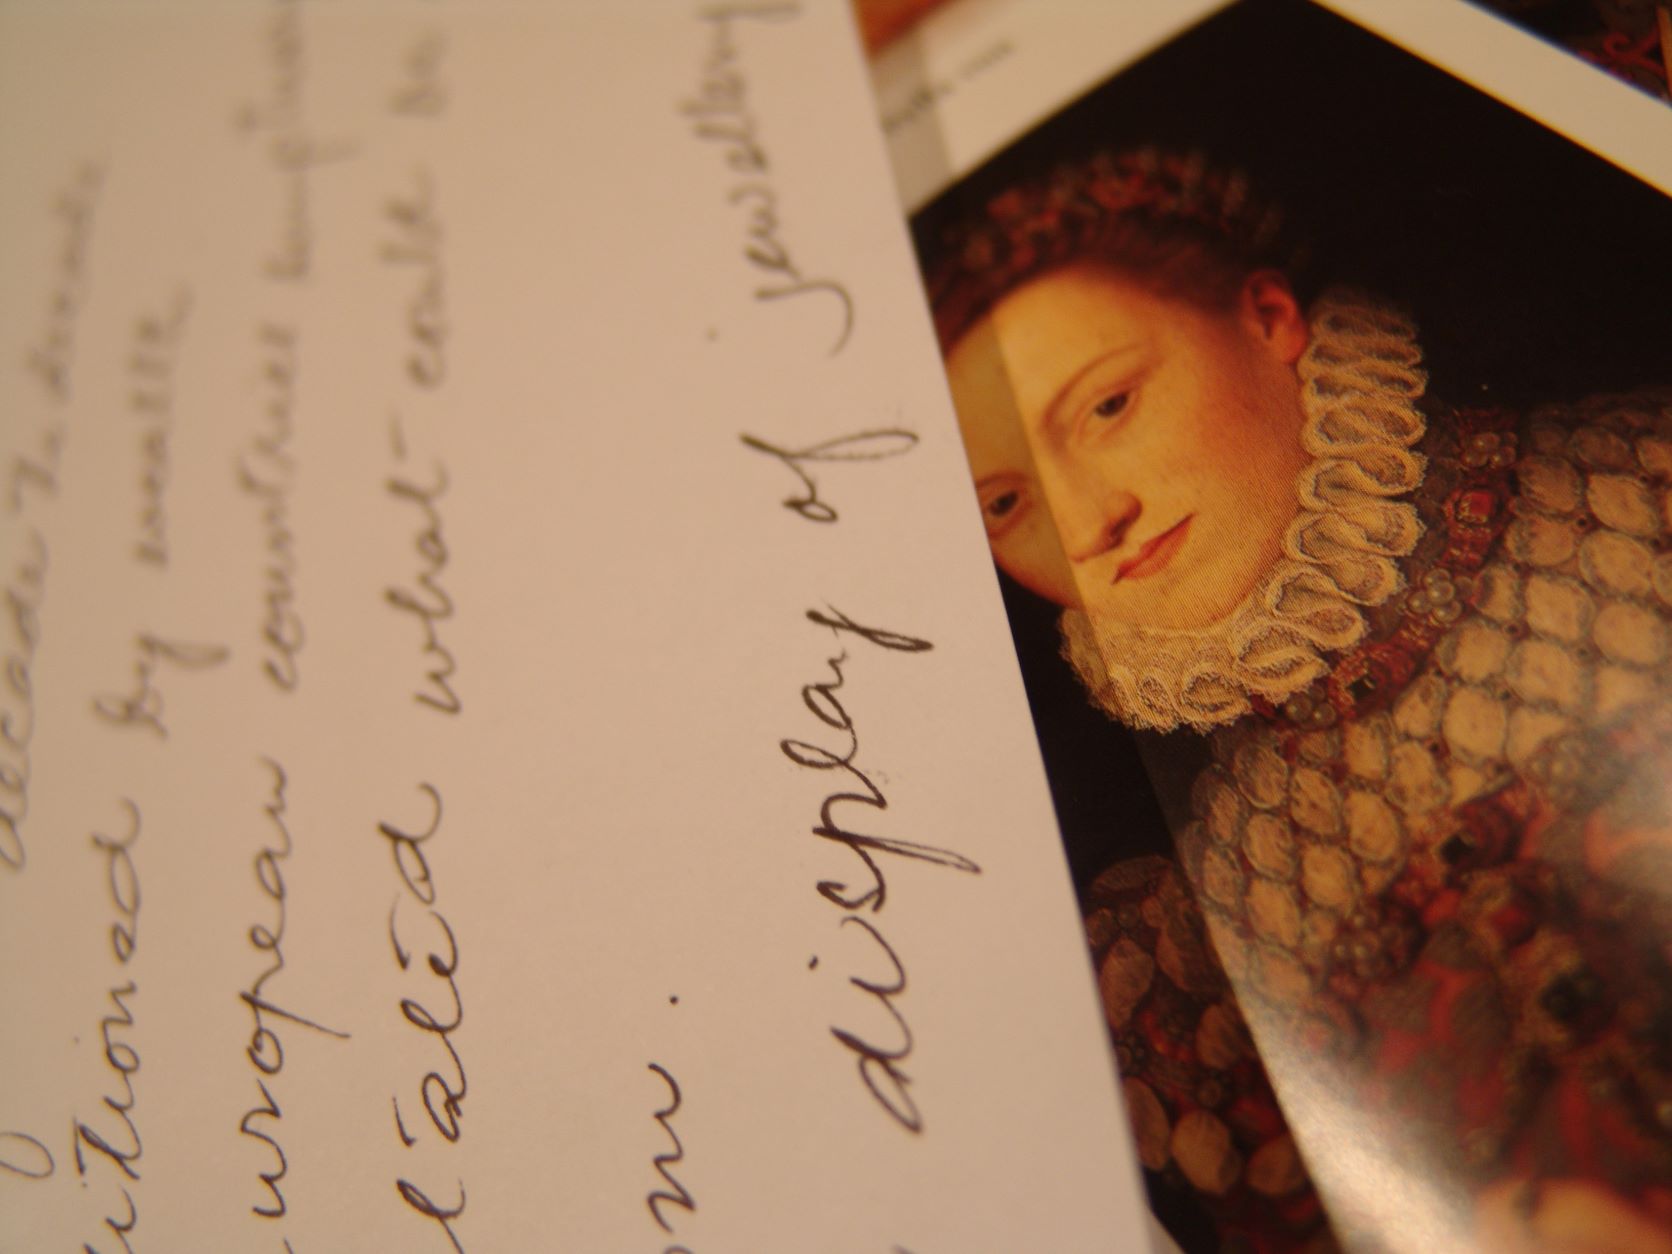 decade
itioned by wealth
uropean countries
lated what could be
om.
display of jewellery